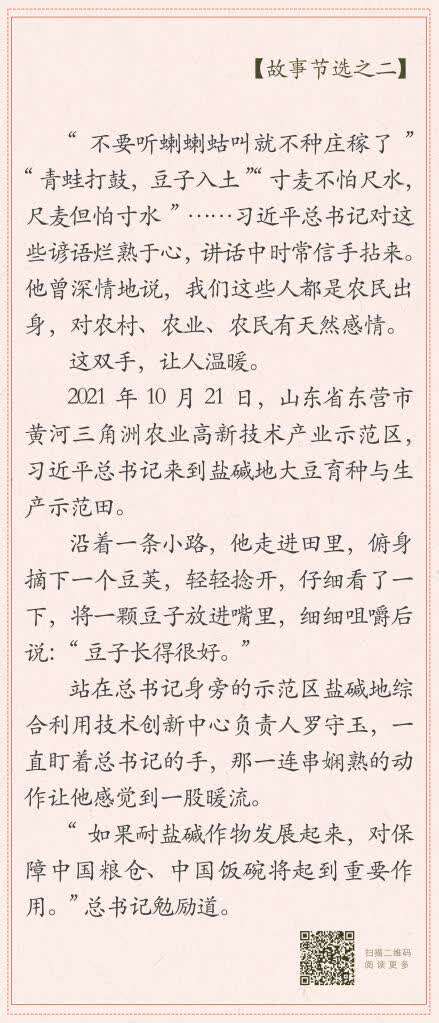 【故事节选之二】
“不要听蝲蝲蛄叫就不种庄稼了”
“青蛙打鼓，豆子入土”“寸麦不怕尺水，
尺麦但怕寸水”……习近平总书记对这
些谚语烂熟于心，讲话中时常信手拈来。
他曾深情地说，我们这些人都是农民出
身，对农村、农业、农民有天然感情。
这双手，让人温暖。
2021 年 10 月 21 日，山东省东营市
黄河三角洲农业高新技术产业示范区，
习近平总书记来到盐碱地大豆育种与生
产示范田。
沿着一条小路，他走进田里，俯身
摘下一个豆荚，轻轻捻开，仔细看了一
下，将一颗豆子放进嘴里，细细咀嚼后
说：“豆子长得很好。”
站在总书记身旁的示范区盐碱地综
合利用技术创新中心负责人罗守玉，一
直盯着总书记的手，那一连串娴熟的动
作让他感觉到一股暖流。
“如果耐盐碱作物发展起来，对保
障中国粮仓、中国饭碗将起到重要作
用。”总书记勉励道。
扫描二维码
阅读更多